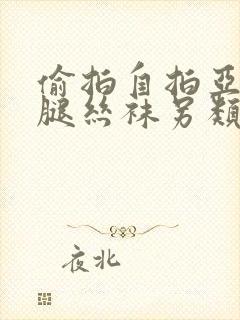 偷拍自拍亞
腿丝袜另類
夜北